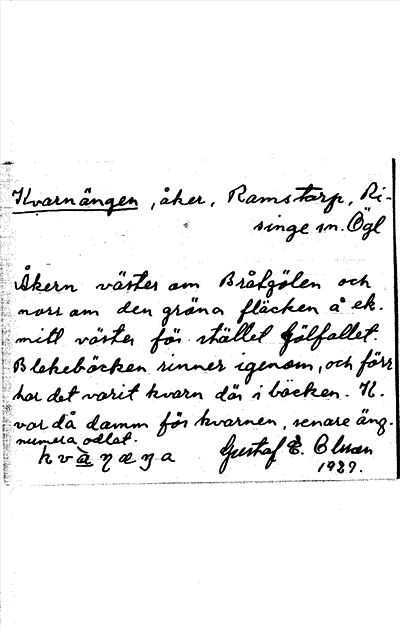 Kvarnängen, åker, Ramstorp, Ri-
singe sn. Ögl
Åkern väster om Bråtgölen och
norr om den gröna fläcken å ek.
mitt väster för stället Gölfallet.
Blekebäcken rinner igenom, och förr
har det varit kvarn där i bäcken. K.
var då damm för kvarnen, senare äng.
numera odlat.
Gustaf E. Olsson
1929.